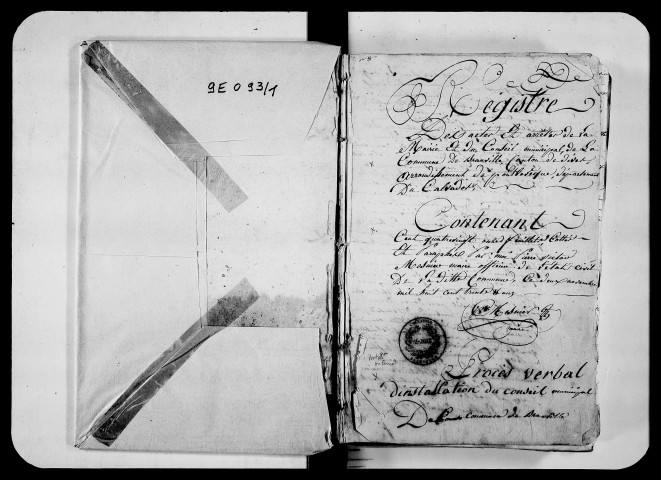 9E 093/1
Régistre
Des actes et arretés de la
Mairie et du Conseil municipal, de La
Commune de Branville Canton de
arrondissement de pontlevêque, département
Du Calvados
Contenant
Cent quatrevingt onze feuillets Cottés
Et Paraphés Par moi Pierre
Mesnier maire officier de l'état civil
De La ditte Commune, Ce deux novembre
mil huit cent trente
Mesnier
Procès verbal
d'installation du conseil municipal
De La Commune de Branville